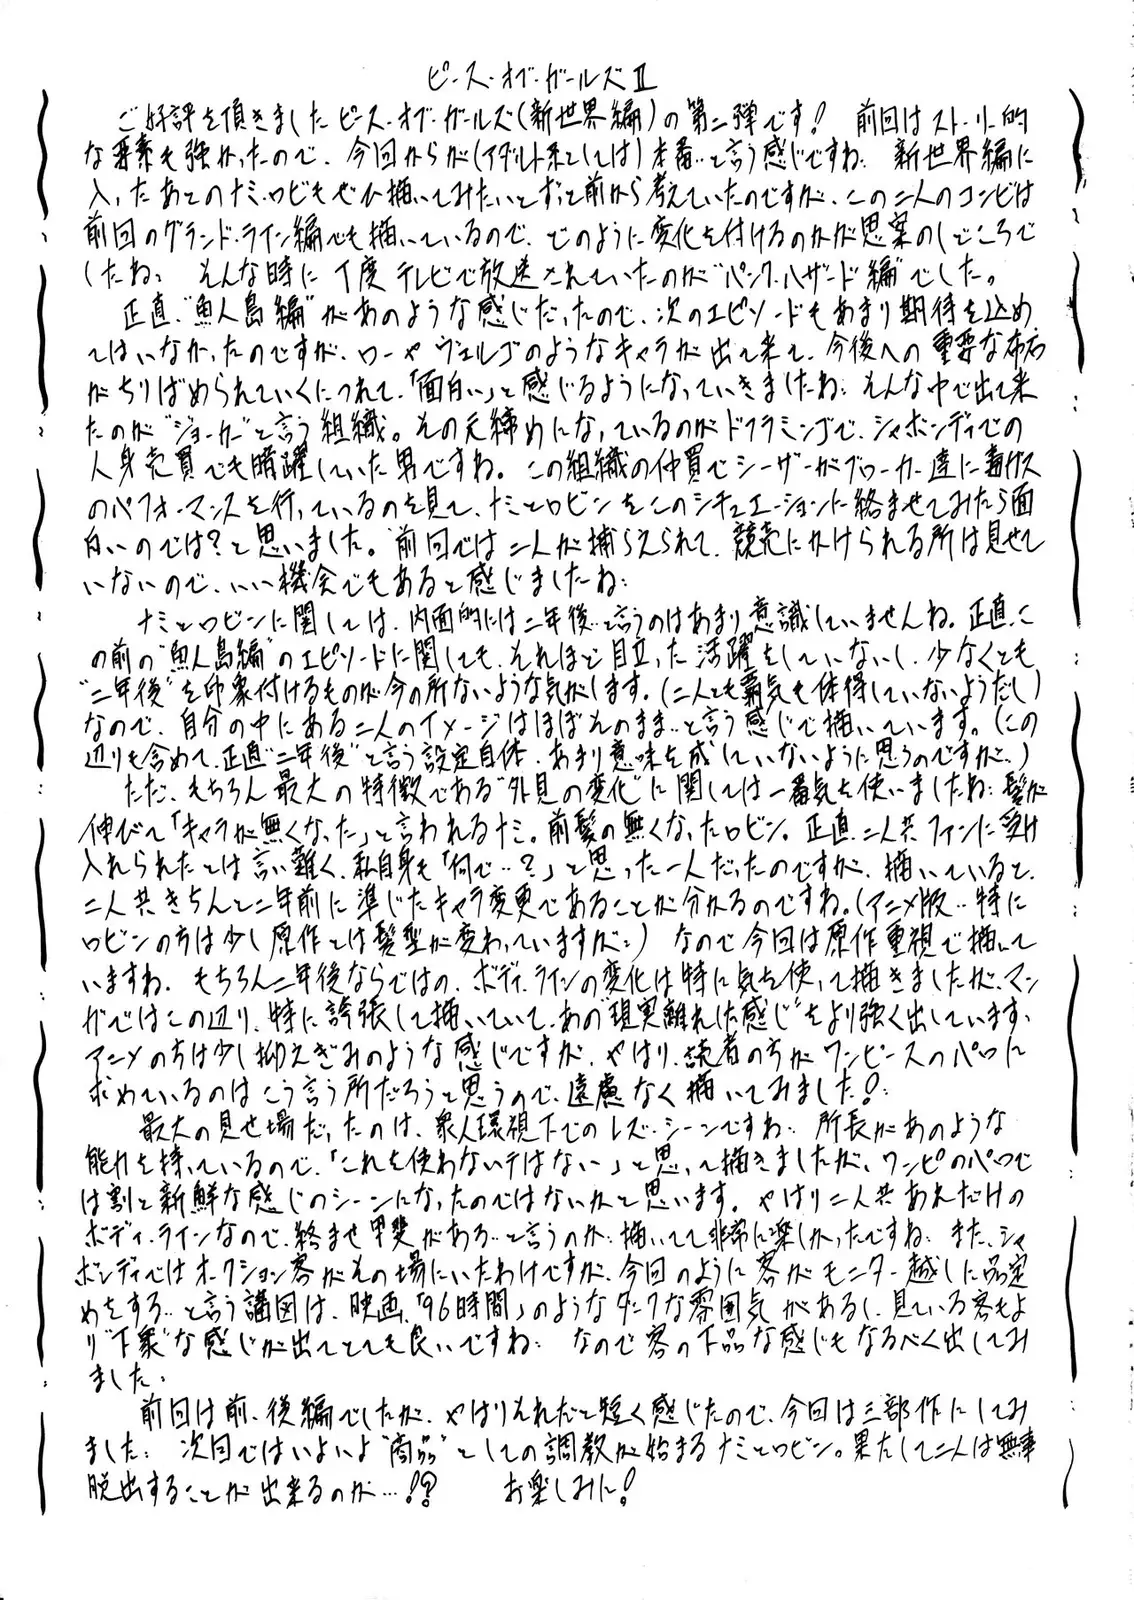 ピース・オブ・ガールズⅡ
ご好評を頂きましたピース・オブ・ガールズ(新世界編)の第二弾です! 前回はストーリー的
な要素も強かったので、今回からが(アダルト系としては)本番…と言う感じですね 新世界編に
入ったあとのナミ、ロビもぜひ描いてみたいとずっと前から考えていたのですが、この二人のコンビは
前回のグランド・ライン編でも描いているので、どのように変化を付けるのかが思案のしどころで
したね そんな時に丁度テレビで放送されていたのが“パンク・ハザード編”でした。
正直、“魚人島編”があのような感じだったので、次のエピソードもあまり期待を込め
てはいなかったのですが、ローやヴェルゴのようなキャラが出て来て、今後への重要な布石
がちりばめられていくにつれて、「面白い」と感じるようになっていきましたね そんな中で出て来
たのが“ジョーカー”と言う組織。その元締めになっているのがドフラミンゴで、シャボンディでの
人身売買でも暗躍していた男ですね。この組織の仲買でシーザーがブローカー達に毒ガス
のパフォーマンスを行っているのを見て、ナミとロビンをこのシチュエーションに絡ませてみたら面
白いのでは?と思いました。前回では二人が捕らえられて、競売にかけられる所は見せて
いないので、いい機会でもあると感じましたね
ナミとロビンに関しては、内面的には二年後…と言うのはあまり意識していませんね。正直、こ
の前の“魚人島編”のエピソードに関しても、それほど目立った活躍をしていないし、少なくとも
“二年後”を印象付けるものが今の所ないような気がします。(二人とも覇気も体得していないようだし)
なので、自分の中にある二人のイメージはほぼそのまま…と言う感じで描いています。(この
辺りも含めて、正直“二年後”と言う設定自体、あまり意味を成していないように思うのですが…)
ただ、もちろん最大の特徴である“外見の変化”に関しては一番気を使いましたね 髪が
伸びて「キャラが無くなった」と言われるナミ。前髪の無くなったロビン。正直、二人共ファンに受け
入れられたとは言い難く、私自身も「何で…?」と思った一人だったのですが、描いていると、
二人共きちんと二年前に準じたキャラ変更であることが分かるのですね。(アニメ版…特に
ロビンの方は少し原作とは髪型が変わっていますが) なので今回は原作重視で描いて
いますね。もちろん二年後ならではの、ボディ・ラインの変化は特に気を使って描きましたが、マン
ガではこの辺り、特に誇張して描いていて、あの“現実離れした感じ”をより強く出しています、
アニメの方は少し抑えぎみのような感じですが、やはり、読者の方がワンピースのパロに
求めているのはこう言う所だろうと思うので、遠慮なく描いてみました!
最大の見せ場だったのは、衆人環視下でのレズ・シーンですね 所長があのような
能力を持っているので、「これを使わないテはない」と思って描きましたが、ワンピのパロで
は割と新鮮な感じのシーンになったのではないかと思います。やはり二人共あれだけの
ボディ・ラインなので、絡ませ甲斐がある…と言うのか、描いてて非常に楽しかったですね また、シャ
ボンディではオークション客がその場にいたわけですが、今回のように客がモニター越しに品定
めをする…と言う構図は、映画「96時間」のようなダークな雰囲気があるし、見ている客もよ
り“下衆”な感じが出てとても良いですね なので客の下品な感じもなるべく出してみ
ました。
前回は前、後編でしたが、やはりそれだと短く感じたので、今回は三部作にしてみ
ました 次回ではいよいよ“商品”としての調教が始まるナミとロビン。果たして二人は無事
脱出することが出来るのか…!? お楽しみに!